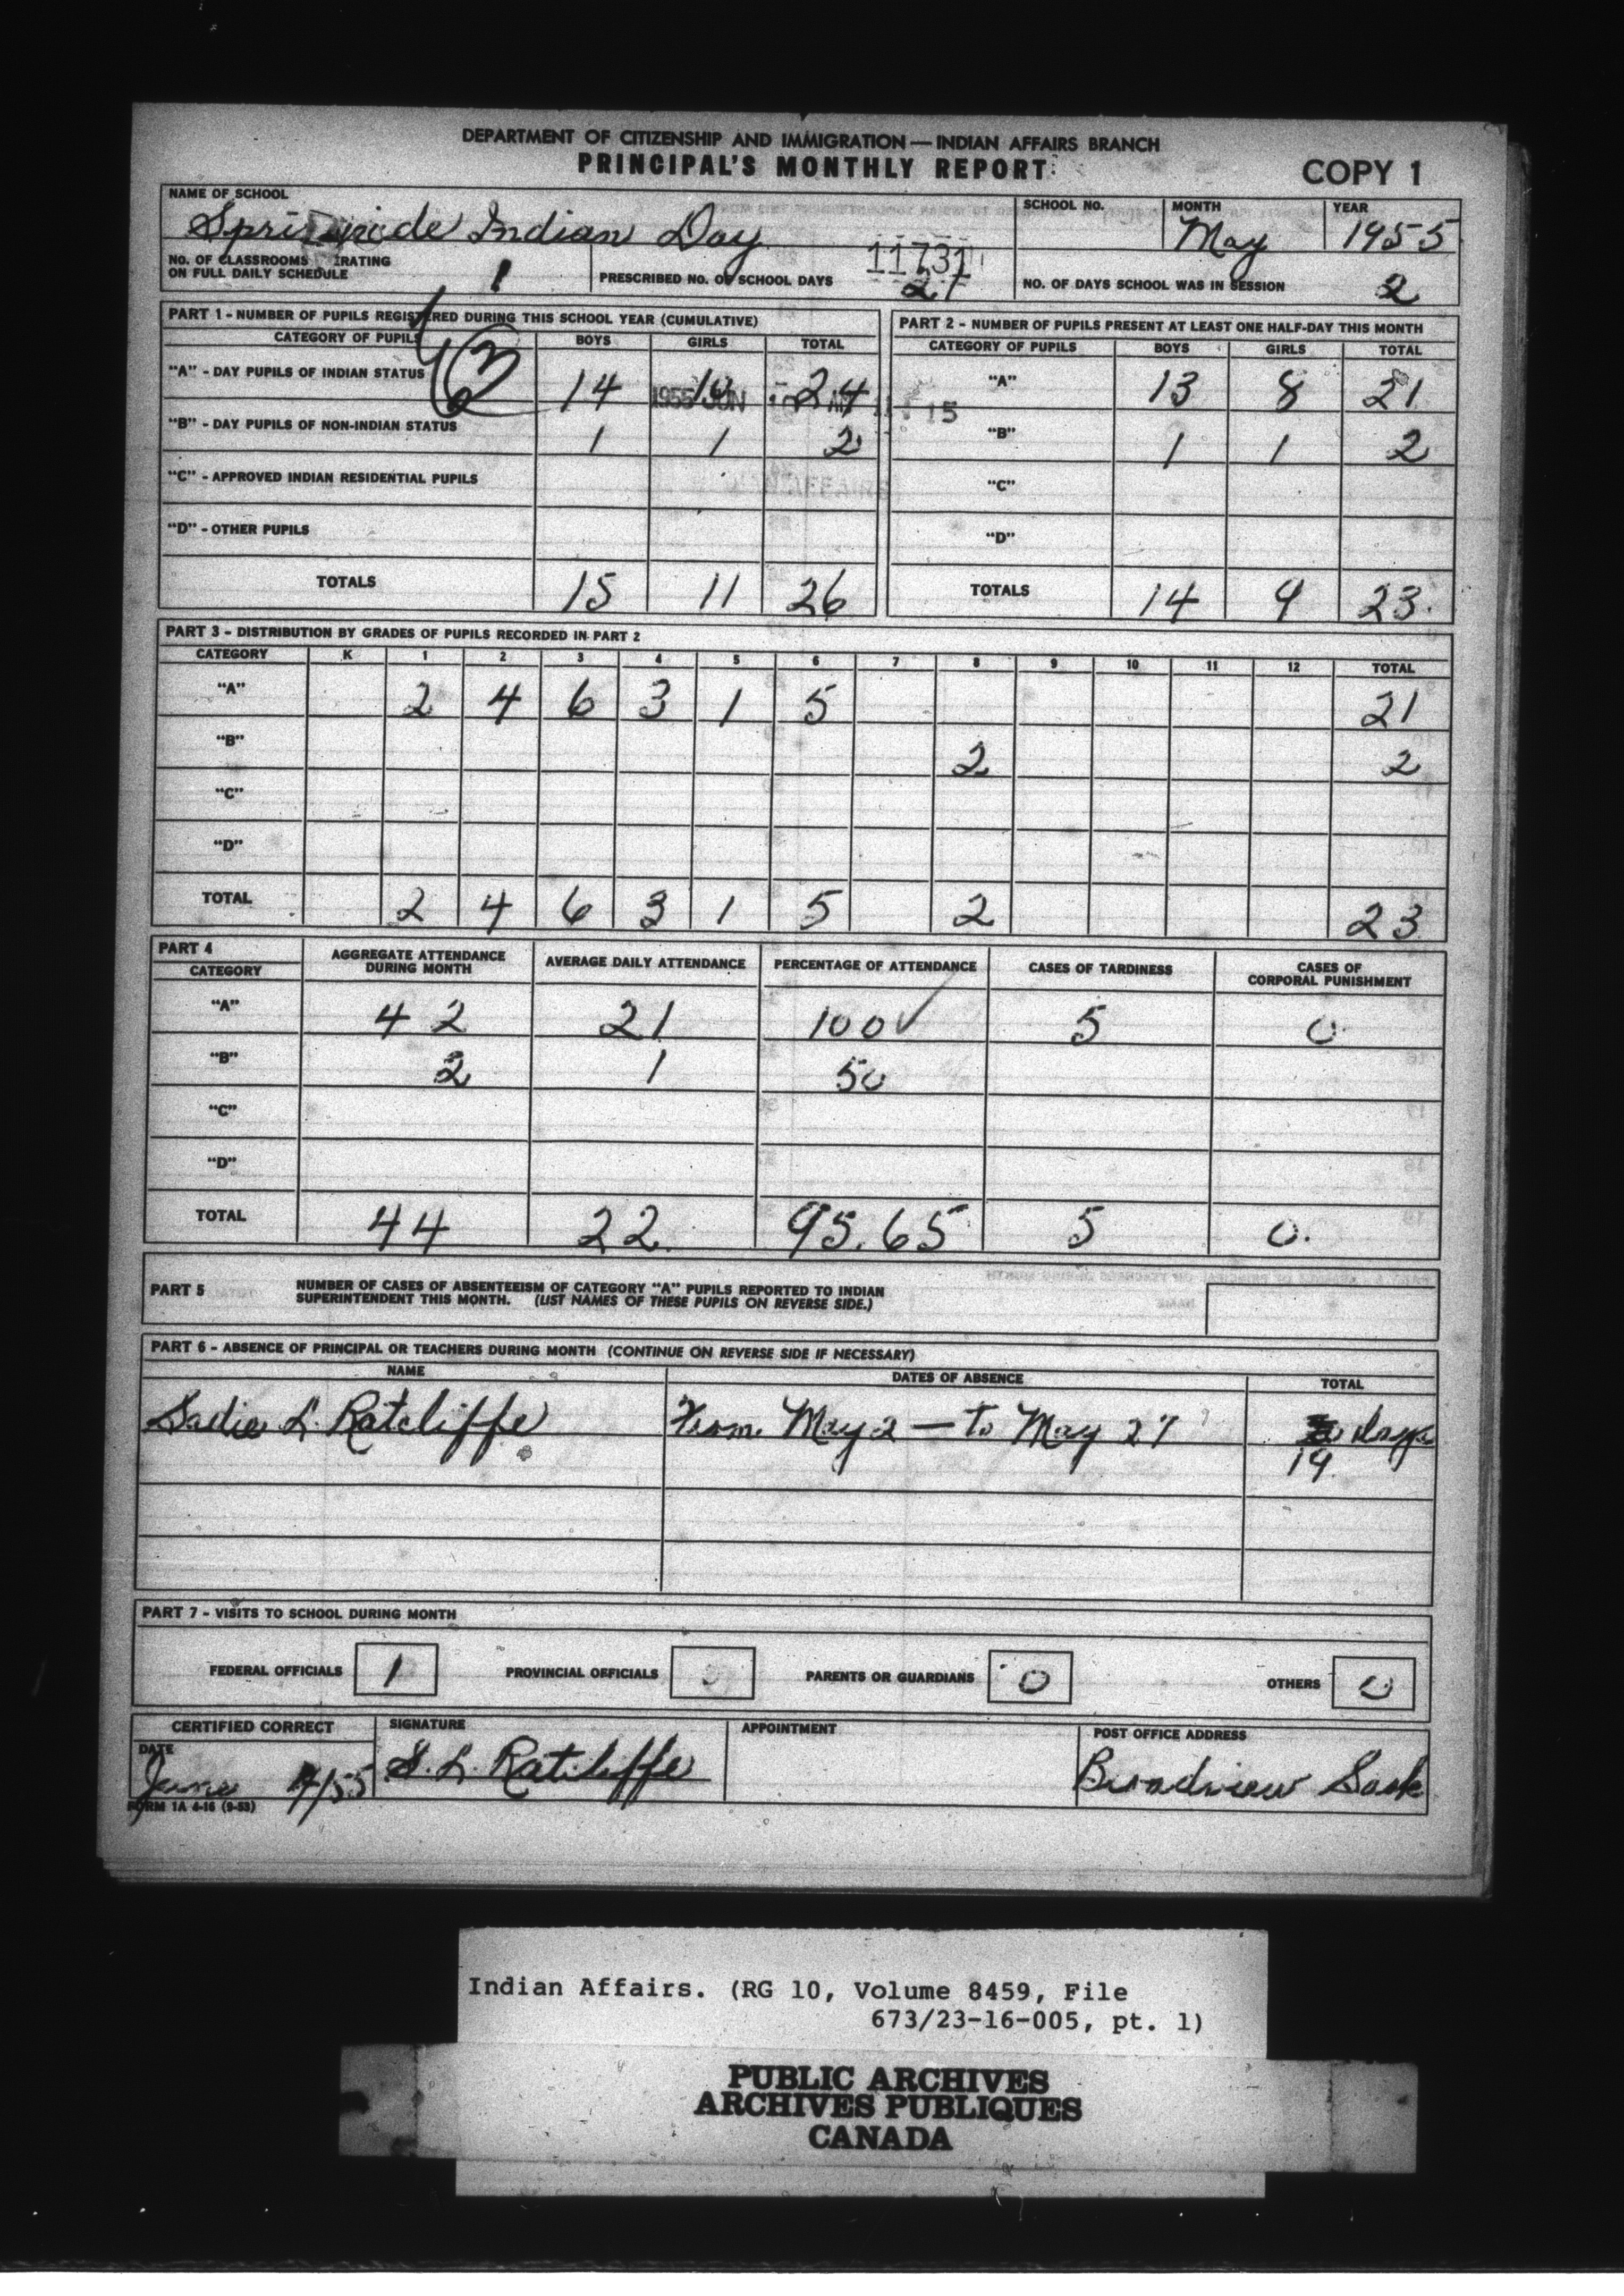 DEPARTMENT OF CITIZENSHIP AND IMMIGRATION — INDIAN AFFAIRS BRANCH
PRINCIPAL'S MONTHLY REPORT COPY 1
NAME OF SCHOOL SCHOOL NO. MONTH YEAR
Indian Day May 1955
11731
NO. OF CLASSROOMS ERATING ON FULL DAILY SCHEDULE 1 PRESCRIBED NO. OF SCHOOL DAYS 21 NO. OF DAYS SCHOOL WAS IN SESSION 2
PART 1 - NUMBER OF PUPILS REGISTERED DURING THIS SCHOOL YEAR (CUMULATIVE) PART 2 - NUMBER OF PUPILS PRESENT AT LEAST ONE HALF-DAY THIS MONTH
CATEGORY OF PUPILS BOYS GIRLS TOTAL CATEGORY OF PUPILS BOYS GIRLS TOTAL
"A" - DAY PUPILS OF INDIAN STATUS 14 10 24 "A" 13 8 21
1955 JUN 15
"B" - DAY PUPILS OF NON-INDIAN STATUS 1 1 2 "B" 1 1 2
"C" - APPROVED INDIAN RESIDENTIAL PUPILS "C"
"D" - OTHER PUPILS "D"
TOTALS 15 11 26 TOTALS 14 9 23.
PART 3 - DISTRIBUTION BY GRADES OF PUPILS RECORDED IN PART 2
CATEGORY K 1 2 3 4 5 6 7 8 9 10 11 12 TOTAL
"A" 2 4 6 3 1 5 21
"B" 2 2
"C"
"D"
TOTAL 2 4 6 3 1 5 2 23
PART 4
CATEGORY AGGREGATE ATTENDANCE DURING MONTH AVERAGE DAILY ATTENDANCE PERCENTAGE OF ATTENDANCE CASES OF TARDINESS CASES OF CORPORAL PUNISHMENT
"A" 42 21 100 ✓ 5 0
"B" 2 1 50
"C"
"D"
TOTAL 44 22. 95.65 5 0.
PART 5 NUMBER OF CASES OF ABSENTEEISM OF CATEGORY "A" PUPILS REPORTED TO INDIAN
SUPERINTENDENT THIS MONTH. (LIST NAMES OF THESE PUPILS ON REVERSE SIDE.)
PART 6 - ABSENCE OF PRINCIPAL OR TEACHERS DURING MONTH (CONTINUE ON REVERSE SIDE IF NECESSARY)
NAME DATES OF ABSENCE TOTAL
Sadie L. Ratcliffe From May 2 — to May 27 days
19
PART 7 - VISITS TO SCHOOL DURING MONTH
FEDERAL OFFICIALS 1 PROVINCIAL OFFICIALS 0 PARENTS OR GUARDIANS 0 OTHERS 0
CERTIFIED CORRECT SIGNATURE APPOINTMENT POST OFFICE ADDRESS
DATE
June /55 S. L. Ratcliffe Broadview Sask
FORM 1A 4-16 (9-53)
Indian Affairs. (RG 10, Volume 8459, File
673/23-16-005, pt. 1)
PUBLIC ARCHIVES
ARCHIVES PUBLIQUES
CANADA